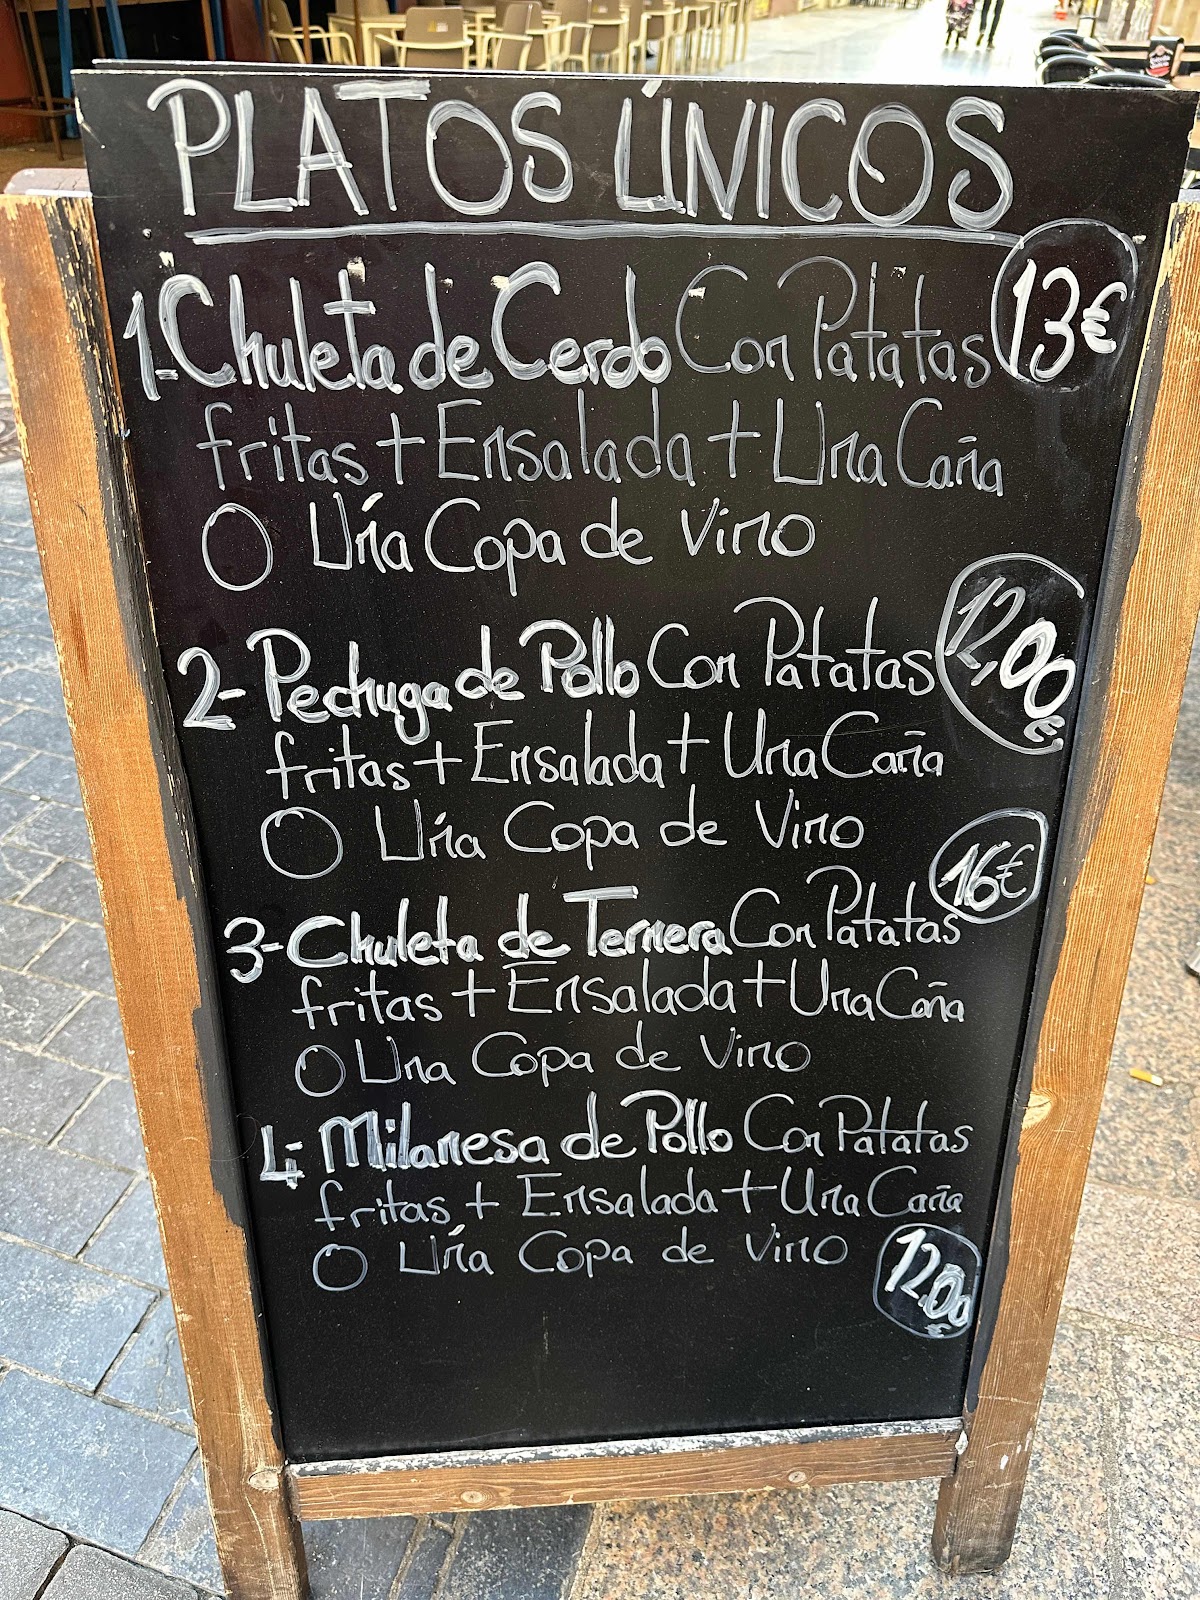 PLATOS ÚNICOS
1- Chuleta de Cerdo Con Patatas 13€
fritas + Ensalada + Una Caña
O Una Copa de Vino
2- Pechuga de Pollo Con Patatas 12,00€
fritas + Ensalada + Una Caña
O Una Copa de Vino
16€
3- Chuleta de Ternera Con Patatas
fritas + Ensalada + Una Caña
O Una Copa de Vino
4- Milanesa de Pollo Con Patatas
fritas + Ensalada + Una Caña
O Una Copa de Vino
12,00€